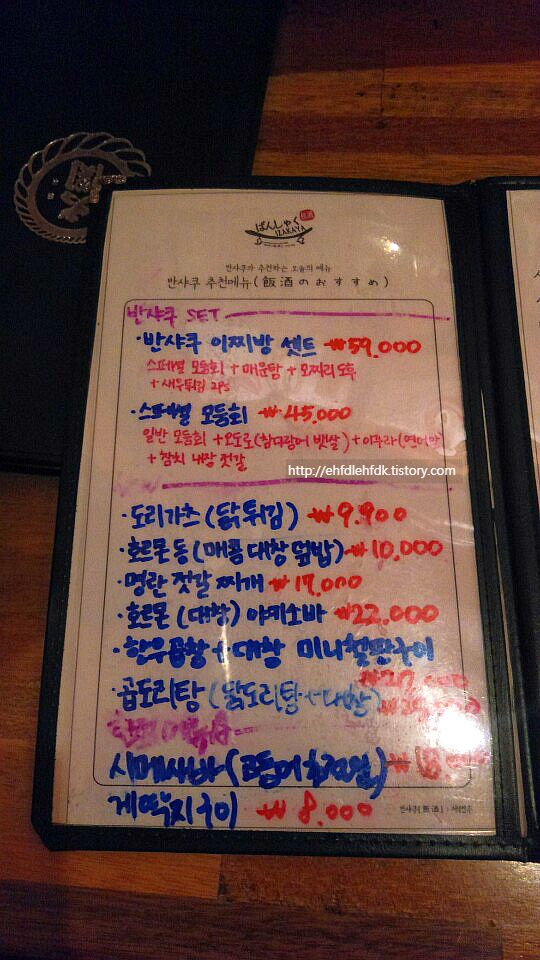 ばんしゃく
IZAKAYA
반샤쿠가 추천하는 오늘의 메뉴
반샤쿠 추천메뉴(飯酒のおすすめ)
반샤쿠 SET
·반샤쿠 이찌방 셋트 ₩59,000
스페셜 모듬회 + 매운탕 + 모찌리도후
+ 새우튀김 2PS
·스페셜 모듬회 ₩45,000
일반 모듬회 + 오도로(참다랑어 뱃살) + 이쿠라(연어알
+ 참치 내장 젓갈
http://ehfdlehfdk.tistory.com
·도리가츠 (닭튀김) ₩9,900
·호르몬동 (매콤 대창 덮밥) ₩10,000
·명란 젓갈 찌개 ₩17,000
·호르몬 (대창) 야키소바 ₩22,000
·한우곱창 + 대창 미니철판구이
₩27,000
·곱도리탕 (닭도리탕 + 대창)
시메사바 (고등어 초절임)
게딱지구이 ₩8,000
반샤쿠(飯酒)